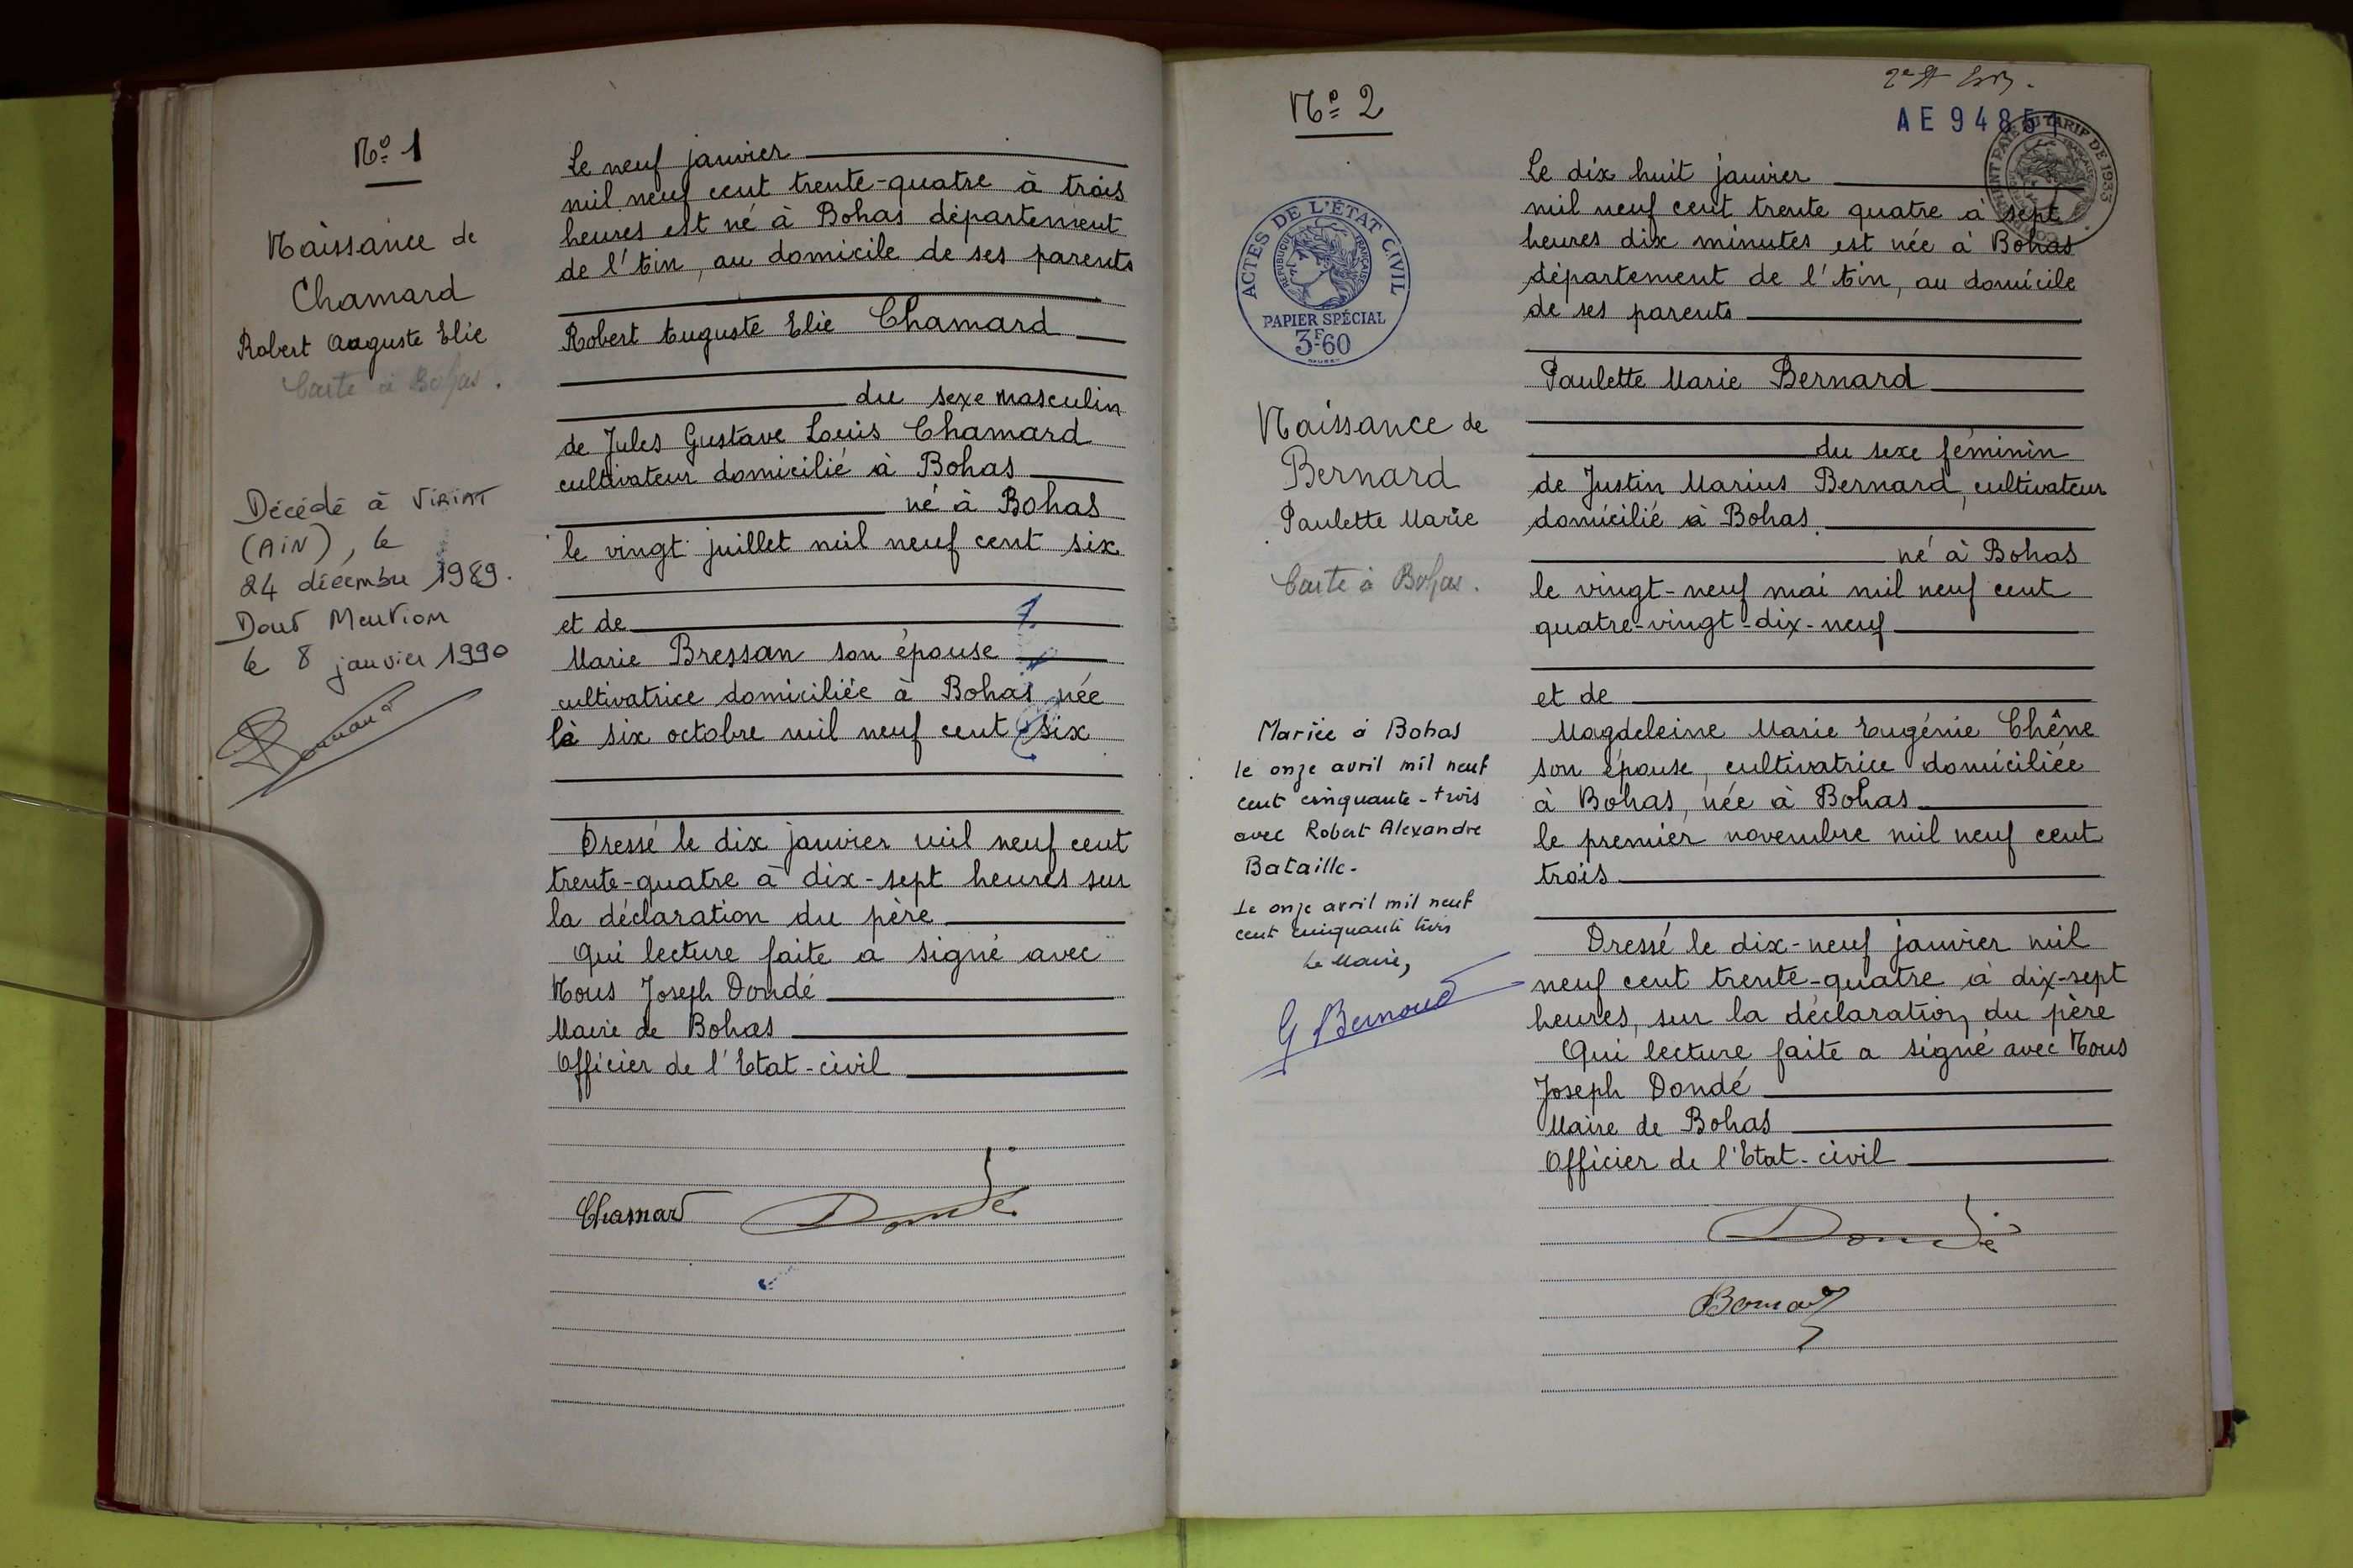 Nº 1
Naissance de
Chamard
Robert Auguste Elie
Carte à Bohas.
Décédé à VIRIAT
(AIN), le
24 décembre 1989.
Dont Mention
le 8 janvier 1990
Le neuf janvier
mil neuf cent trente-quatre à trois
heures est né à Bohas département
de l'Ain, au domicile de ses parents
Robert Auguste Elie Chamard
du sexe masculin
de Jules Gustave Louis Chamard
cultivateur domicilié à Bohas
né à Bohas
le vingt juillet mil neuf cent six
et de
Marie Bressan son épouse
cultivatrice domiciliée à Bohas née
le six octobre mil neuf cent six
Dressé le dix janvier mil neuf cent
trente-quatre à dix-sept heures sur
la déclaration du père
Qui lecture faite a signé avec
Nous Joseph Dondé
Maire de Bohas
Officier de l'Etat-civil
Chamard Dondé
Nº 2
AE 94851
ACTES DE L'ÉTAT CIVIL
RÉPUBLIQUE FRANÇAISE
PAPIER SPÉCIAL
3F60
TARIF DE 1933
Naissance de
Bernard
Paulette Marie
Carte à Bohas.
Mariée à Bohas
le onze avril mil neuf
cent cinquante-trois
avec Robert Alexandre
Bataille.
Le onze avril mil neuf
cent cinquante trois
Le Maire,
Le dix huit janvier
mil neuf cent trente quatre à sept
heures dix minutes est née à Bohas
département de l'Ain, au domicile
de ses parents
Paulette Marie Bernard
du sexe féminin
de Justin Marius Bernard, cultivateur
domicilié à Bohas
né à Bohas
le vingt-neuf mai mil neuf cent
quatre-vingt-dix-neuf
et de
Magdeleine Marie Eugénie Chêne
son épouse, cultivatrice domiciliée
à Bohas, née à Bohas
le premier novembre mil neuf cent
trois
Dressé le dix-neuf janvier mil
neuf cent trente-quatre à dix-sept
heures, sur la déclaration du père
Qui lecture faite a signé avec Nous
Joseph Dondé
Maire de Bohas
Officier de l'Etat-civil
Dondé